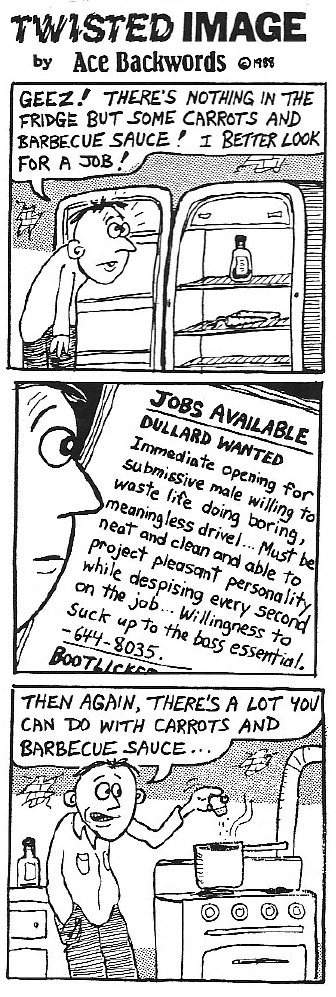 TWISTED IMAGE
by Ace Backwords ©1988
GEEZ! THERE'S NOTHING IN THE
FRIDGE BUT SOME CARROTS AND
BARBECUE SAUCE! I BETTER LOOK
FOR A JOB!
JOBS AVAILABLE
DULLARD WANTED
Immediate opening for
submissive male willing to
waste life doing boring,
meaningless drivel... Must be
neat and clean and able to
project pleasant personality
while despising every second
on the job... Willingness to
suck up to the boss essential.
-644-8035.
BOOTLICKER
THEN AGAIN, THERE'S A LOT YOU
CAN DO WITH CARROTS AND
BARBECUE SAUCE...